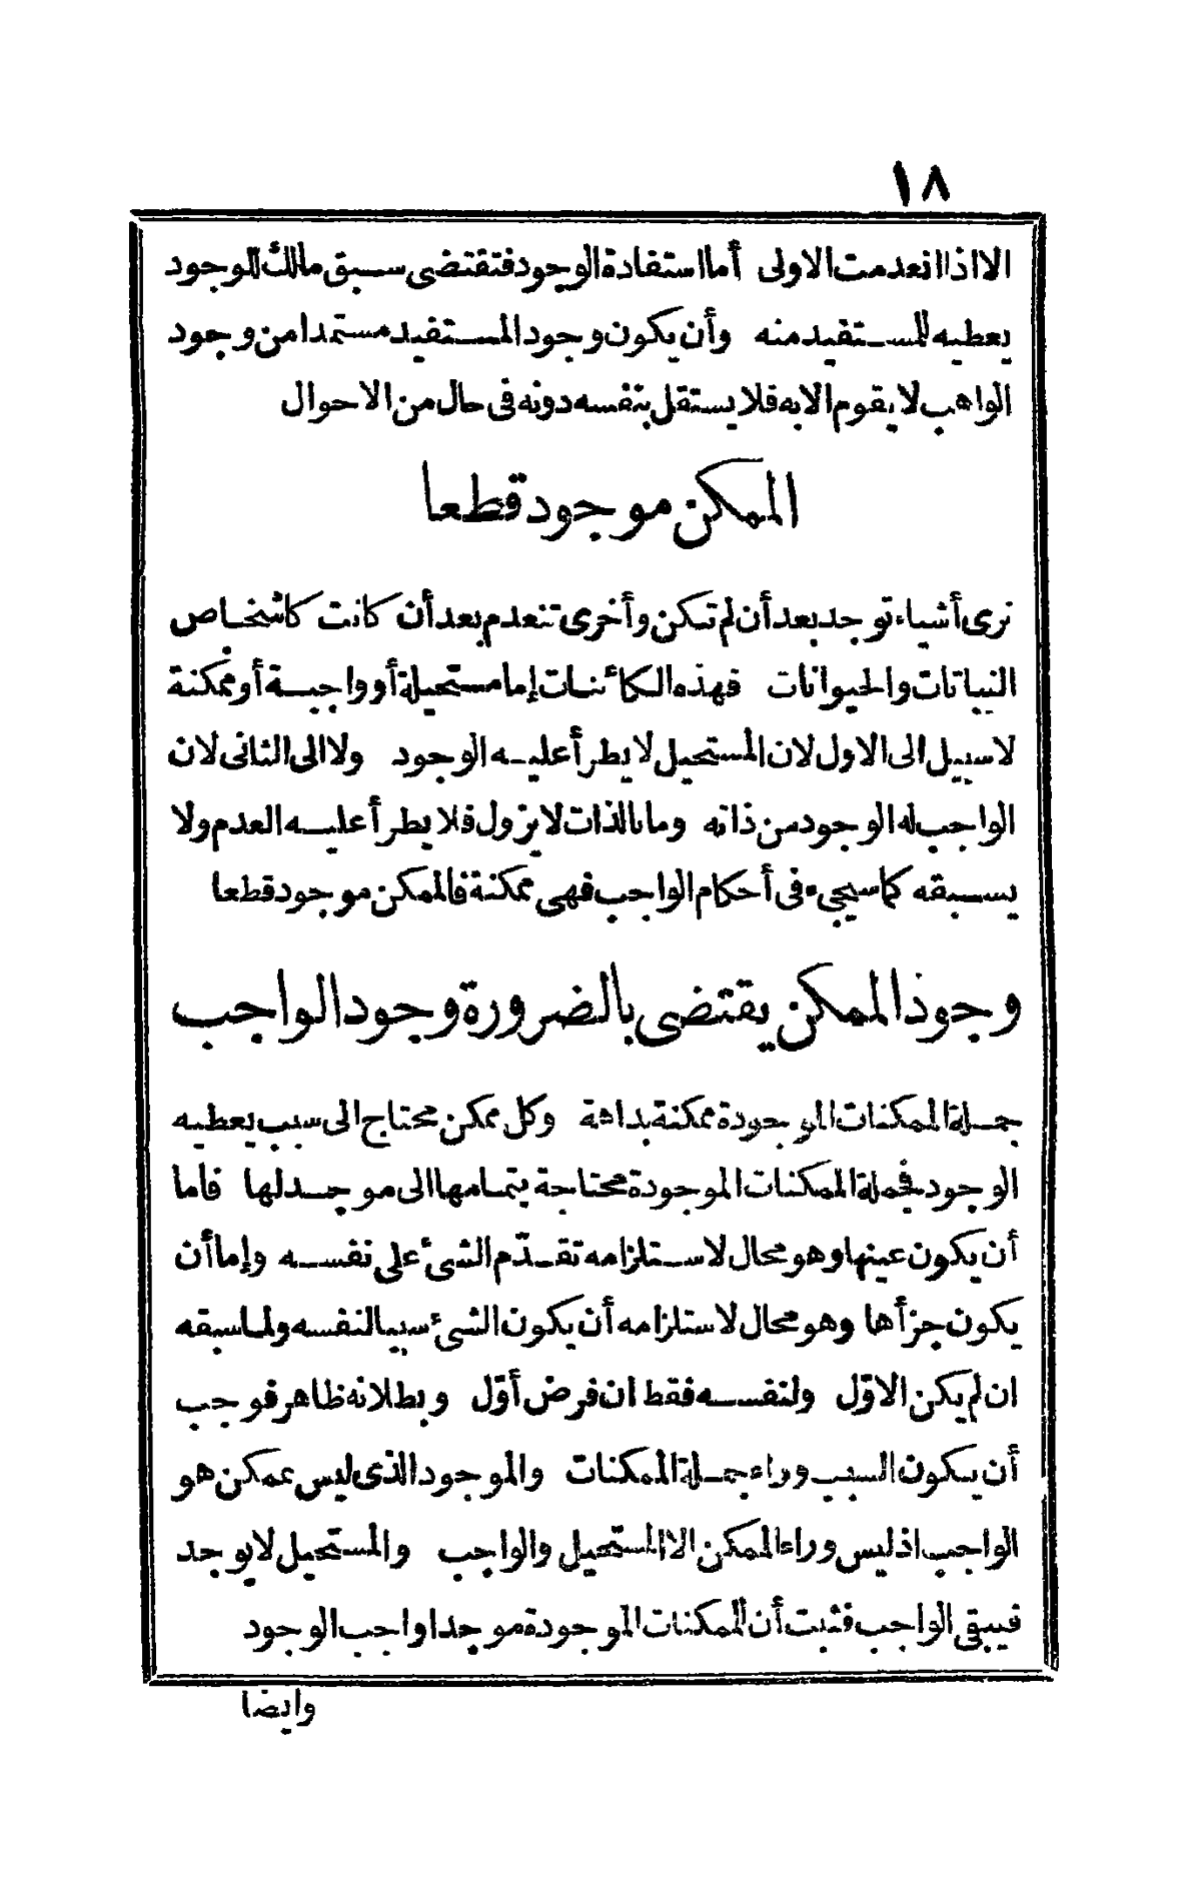 ١٨
الا اذا انعدمت الاولى أما استفادة الوجود فتقتضى سبق مالك للوجود
يعطيه للمستفيد منه وأن يكون وجود المستفيد مستمدا من وجود
الواهب لا يقوم الا به فلا يستقل بنفسه دونه فى حال من الاحوال
الممكن موجود قطعا
نرى أشياء توجد بعد أن لم تكن وأخرى تنعدم بعد أن كانت كاشخاص
النباتات والحيوانات فهذه الكائنات إما مستحيلة أو واجبة أو ممكنة
لا سبيل الى الاول لان المستحيل لا يطرأ عليه الوجود ولا الى الثانى لان
الواجب له الوجود من ذاته وما بالذات لا يزول فلا يطرأ عليه العدم ولا
يسبقه كما سيجىء فى أحكام الواجب فهى ممكنة فالممكن موجود قطعا
وجود الممكن يقتضى بالضرورة وجود الواجب
جملة الممكنات الموجودة ممكنة بداهة وكل ممكن محتاج الى سبب يعطيه
الوجود فجملة الممكنات الموجودة محتاجة بتمامها الى موجد لها فاما
أن يكون عينها وهو محال لاستلزامه تقدّم الشئ على نفسه وإما أن
يكون جزأها وهو محال لاستلزامه أن يكون الشئ سببا لنفسه ولما سبقه
ان لم يكن الاوّل ولنفسه فقط ان فرض أوّل وبطلانه ظاهر فوجب
أن يكون السبب وراء جملة الممكنات والموجود الذى ليس بممكن هو
الواجب اذ ليس وراء الممكن الا المستحيل والواجب والمستحيل لا يوجد
فيبقى الواجب فثبت أن للممكنات الموجودة موجدا واجب الوجود
وايضا